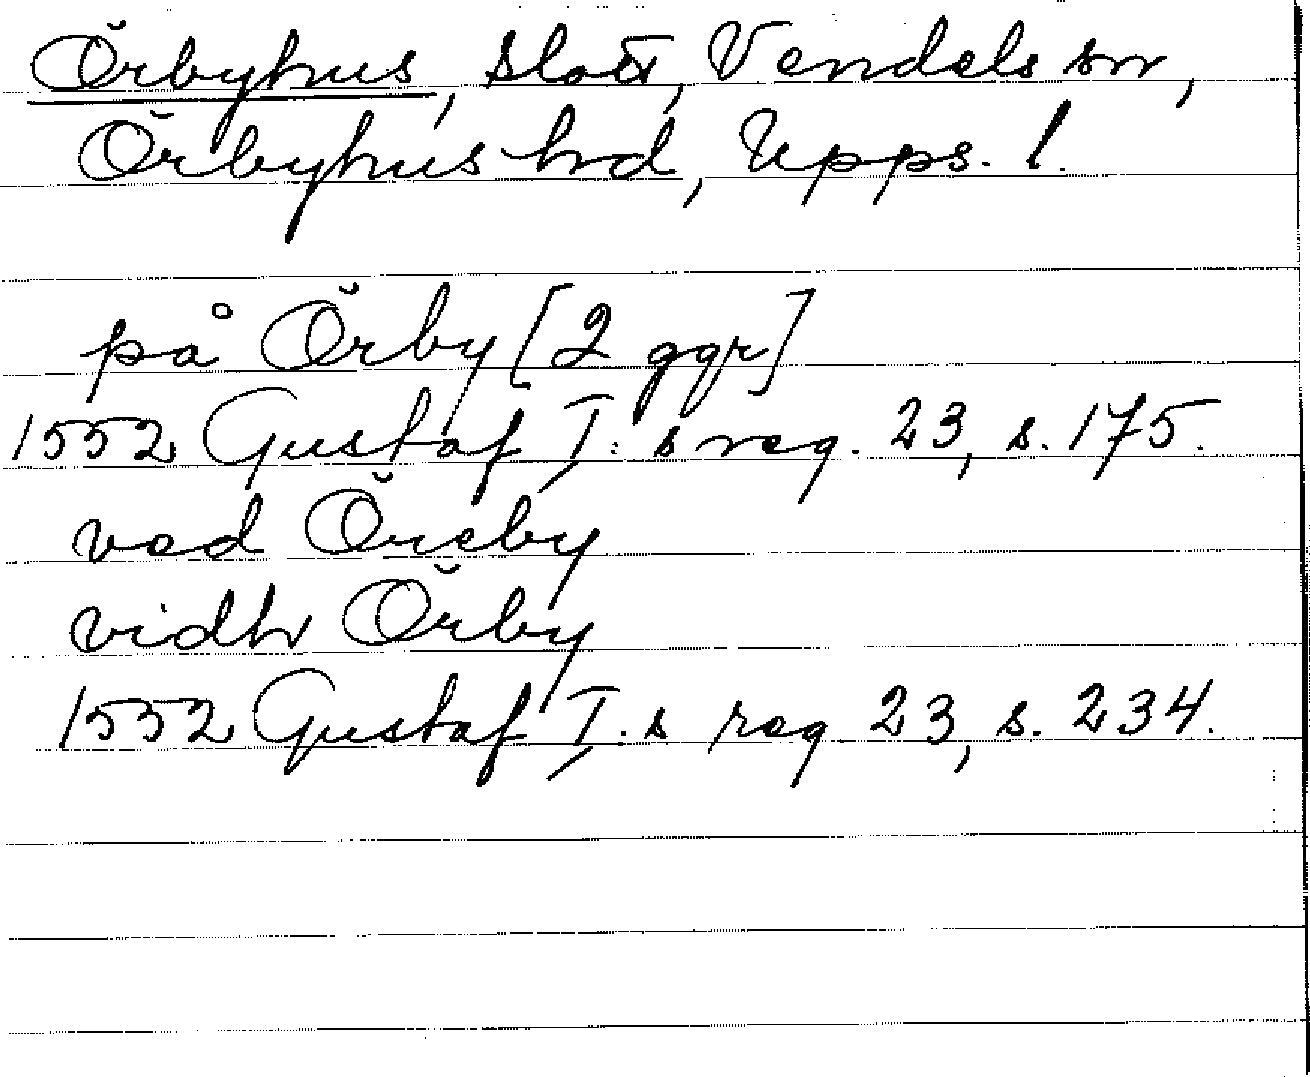 Örbyhus, slott, Vendels sn,
Örbyhus hd, Upps. l.
på Örby [2 ggr]
1552 Gustaf I:s reg. 23, s. 175.
ved Öreby
vidh Örby
1552 Gustaf I.s reg 23, s. 234.